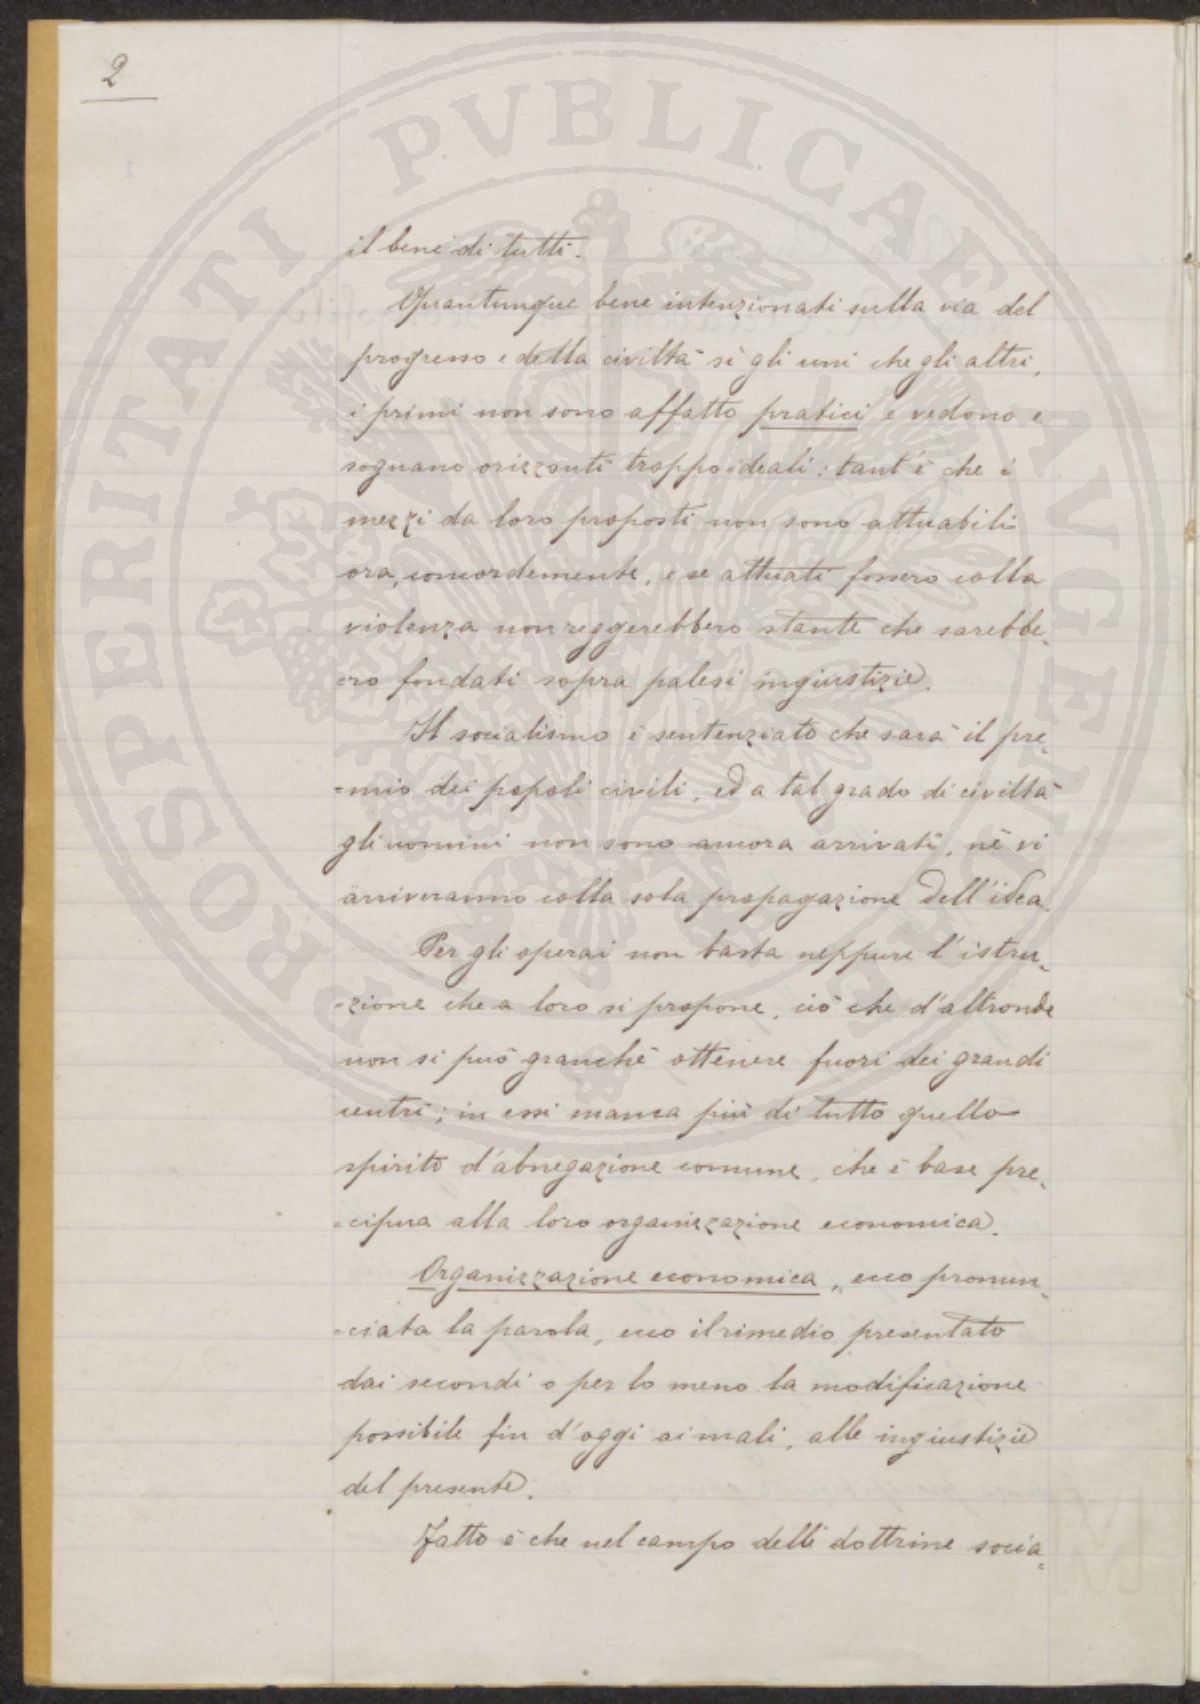 2
il bene di tutti.
Quantunque bene intenzionati sulla via del
progresso e della civiltà sì gli uni che gli altri,
i primi non sono affatto pratici e vedono e
sognano orizzonti troppo ideali: tant'è che i
mezzi da loro proposti non sono attuabili
ora, concordemente, e se attuati fossero colla
violenza non reggerebbero stante che sarebbe-
-ro fondati sopra palesi ingiustizie.
Il socialismo è sentenziato che sarà il pre-
-mio dei popoli civili, ed a tal grado di civiltà
gli uomini non sono ancora arrivati, nè vi
arriveranno colla sola propagazione dell'idea.
Per gli operai non basta neppure l'istru-
-zione che a loro si propone, ciò che d'altronde
non si può granchè ottenere fuori dei grandi
centri; in essi manca più di tutto quello
spirito d'abnegazione comune, che è base pre-
-cipua alla loro organizzazione economica.
Organizzazione economica, ecco pronun-
-ciata la parola, ecco il rimedio presentato
dai secondi o per lo meno la modificazione
possibile fin d'oggi ai mali, alle ingiustizie
del presente.
Fatto è che nel campo delle dottrine socia-
PROSPERITATI PVBLICAE AVGENDAE